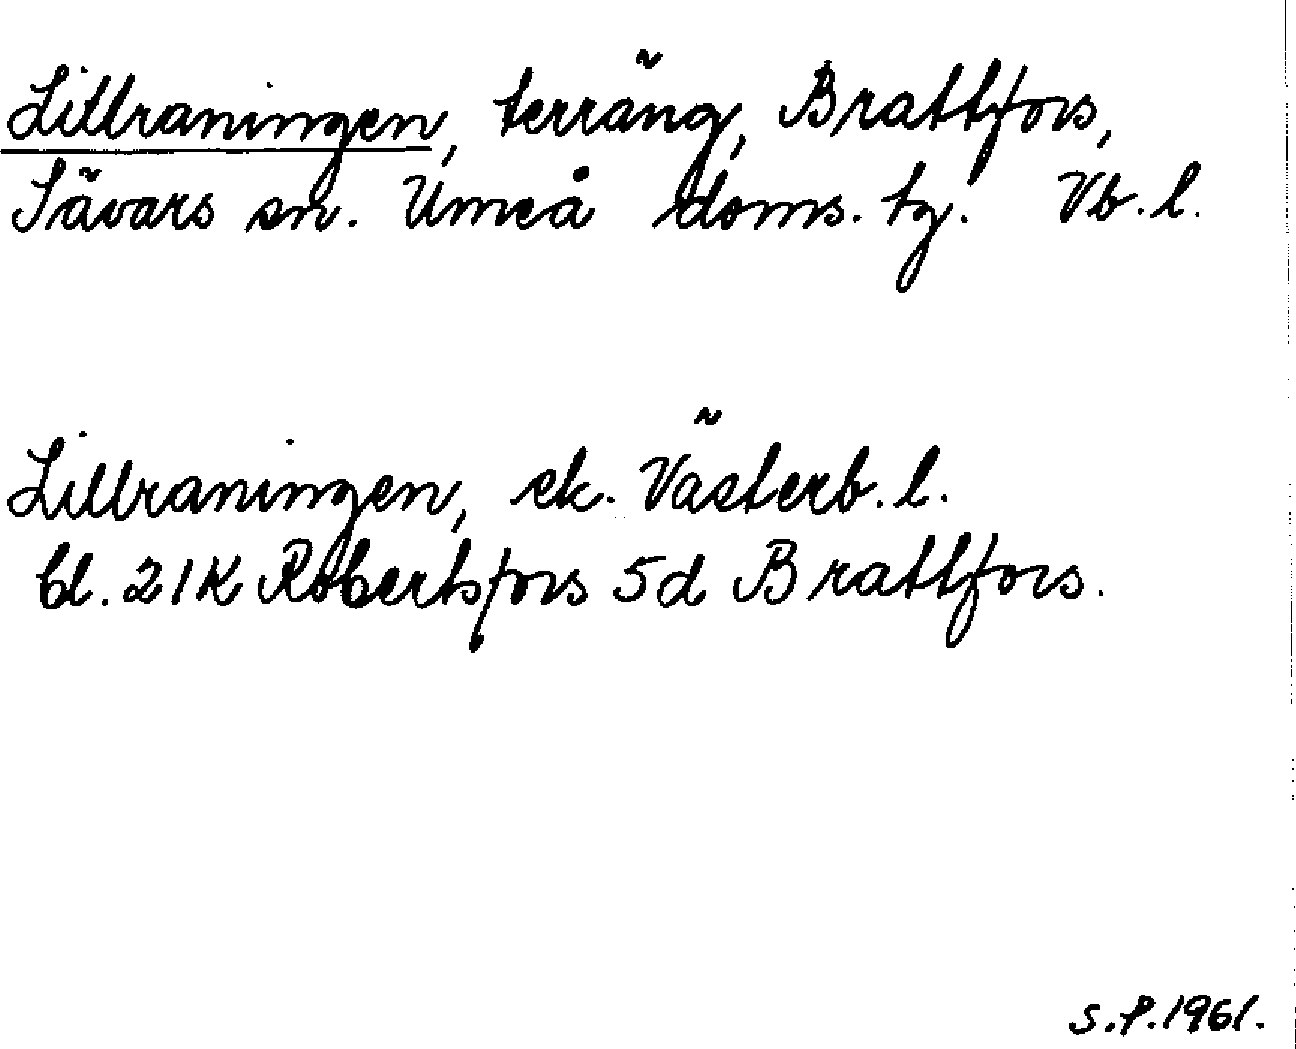 Lillraningen, terräng, Brattfors,
Sävars sn. Umeå doms. tg. Vb. l.
Lillraningen, ek. Västerb. l.
bl. 21K Robertsfors 5d Brattfors.
S.P. 1961.